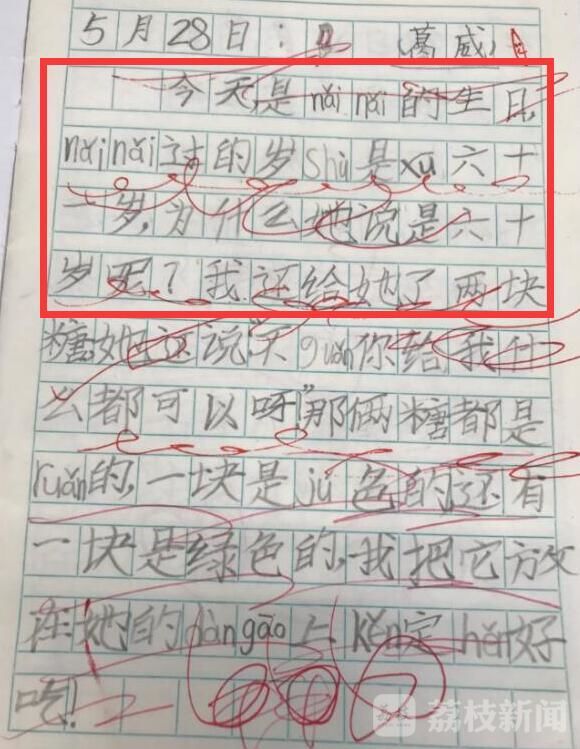 5月28日: (葛威)
今天,是nǎi nǎi的生日,
nǎi nǎi过的岁shù是xū六十
一岁,为什么她说是六十
岁呢?我还给她了两块
糖,她还说“无guǎn你给我什
么都可以呀”那俩糖都是
ruǎn的,一块是jú色的还有
一块是绿色的,我把它放
在她的dàn gāo上kěn定hěn好
吃!
荔枝新闻